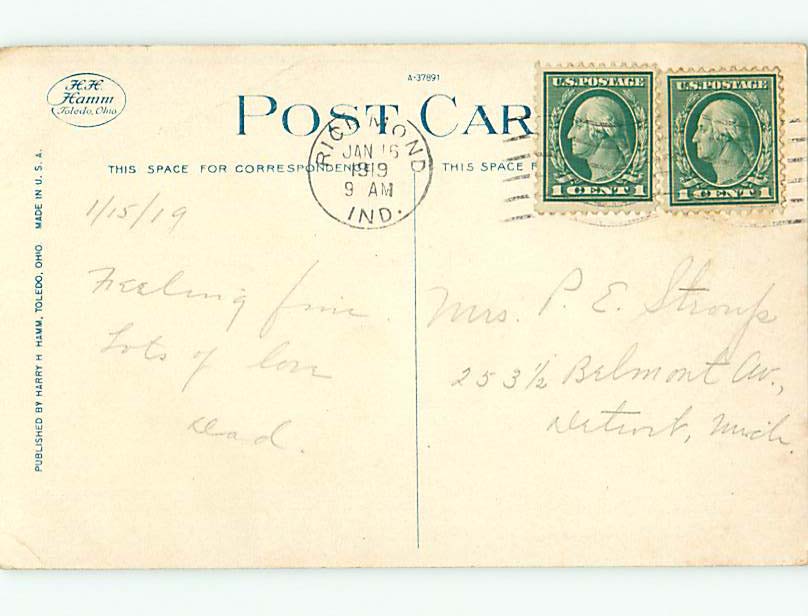 H.H.
Hamm
Toledo, Ohio
A-37891
POST CAR
THIS SPACE FOR CORRESPONDENCE
THIS SPACE F
RICHMOND
JAN 16
1919
9 AM
IND.
U.S. POSTAGE
1 CENT 1
U.S. POSTAGE
1 CENT 1
PUBLISHED BY HARRY H. HAMM, TOLEDO, OHIO. MADE IN U. S. A.
1/15/19
Feeling fine.
Lots of love
Dad.
Mrs. P. E. Stroup
253 1/2 Belmont Av.,
Detroit, Mich.